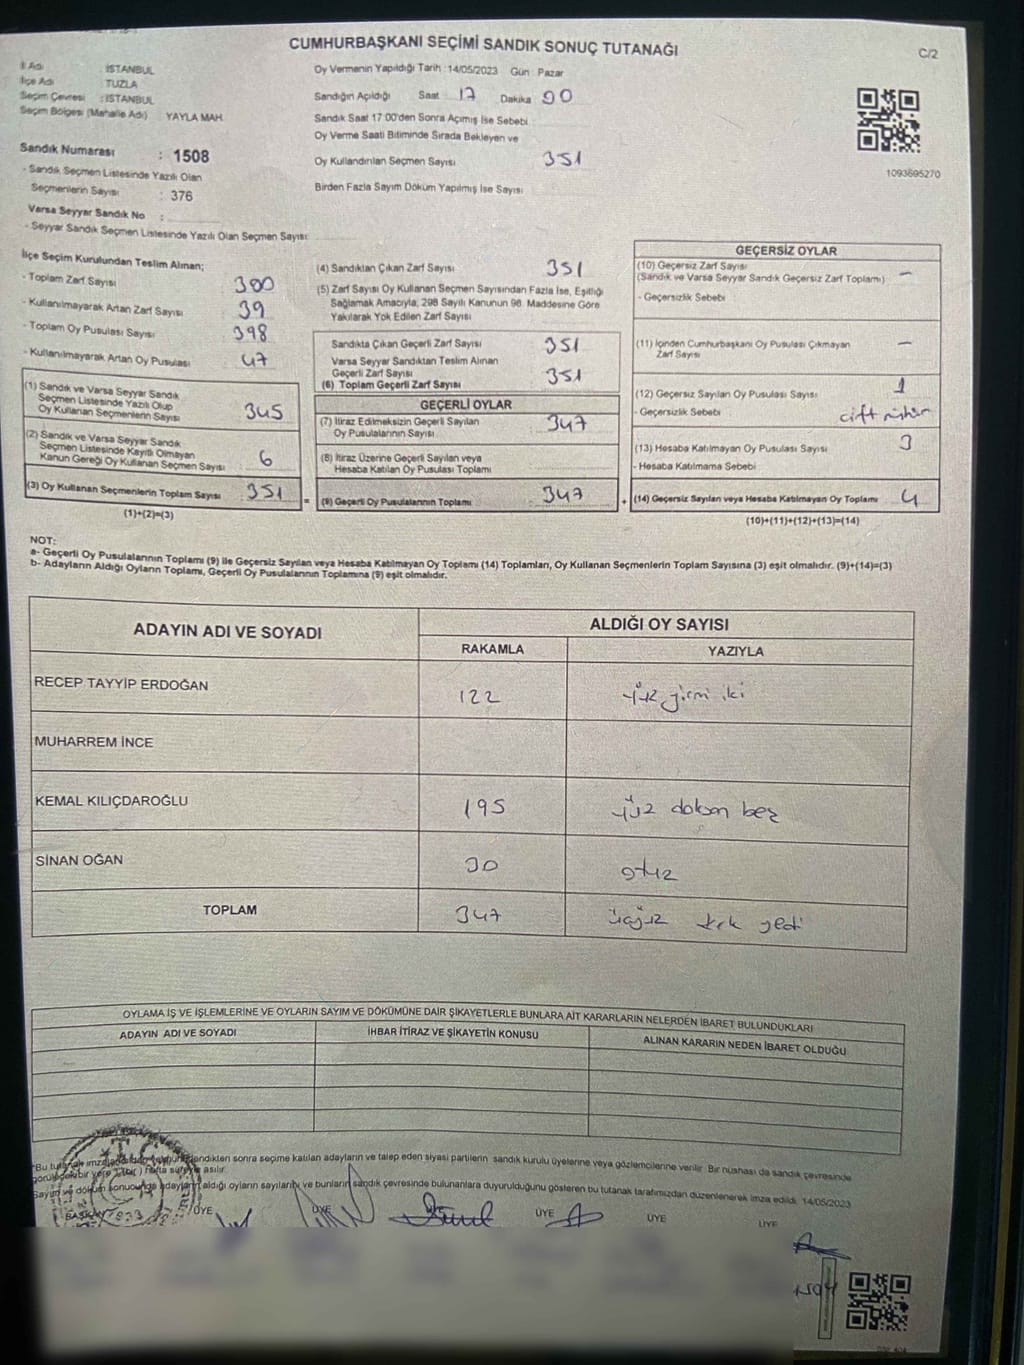 CUMHURBAŞKANI SEÇİMİ SANDIK SONUÇ TUTANAĞI
C/2
İl Adı : İSTANBUL
İlçe Adı : TUZLA
Seçim Çevresi : İSTANBUL
Seçim Bölgesi (Mahalle Adı) YAYLA MAH.
Sandık Numarası : 1508
- Sandık Seçmen Listesinde Yazılı Olan
Seçmenlerin Sayısı : 376
Varsa Seyyar Sandık No :
- Seyyar Sandık Seçmen Listesinde Yazılı Olan Seçmen Sayısı:
Oy Vermenin Yapıldığı Tarih : 14/05/2023 Gün : Pazar
Sandığın Açıldığı Saat 17 Dakika 00
Sandık Saat 17:00'den Sonra Açımış İse Sebebi
Oy Verme Saati Bitiminde Sırada Bekleyen ve
Oy Kullandırılan Seçmen Sayısı 351
Birden Fazla Sayım Döküm Yapılmış İse Sayısı
1093695270
İlçe Seçim Kurulundan Teslim Alınan;
- Toplam Zarf Sayısı 380
- Kullanılmayarak Artan Zarf Sayısı 39
- Toplam Oy Pusulası Sayısı 398
- Kullanılmayarak Artan Oy Pusulası 47
(1) Sandık ve Varsa Seyyar Sandık
Seçmen Listesinde Yazılı Olup
Oy Kullanan Seçmenlerin Sayısı 345
(2) Sandık ve Varsa Seyyar Sandık
Seçmen Listesinde Kayıtlı Olmayan
Kanun Gereği Oy Kullanan Seçmen Sayısı 6
(3) Oy Kullanan Seçmenlerin Toplam Sayısı 351
(1)+(2)=(3)
(4) Sandıktan Çıkan Zarf Sayısı 351
(5) Zarf Sayısı Oy Kullanan Seçmen Sayısından Fazla İse, Eşitliği
Sağlamak Amacıyla, 298 Sayılı Kanunun 98. Maddesine Göre
Yakılarak Yok Edilen Zarf Sayısı
Sandıkta Çıkan Geçerli Zarf Sayısı 351
Varsa Seyyar Sandıktan Teslim Alınan
Geçerli Zarf Sayısı
(6) Toplam Geçerli Zarf Sayısı 351
GEÇERLİ OYLAR
(7) İtiraz Edilmeksizin Geçerli Sayılan
Oy Pusulalarının Sayısı 347
(8) İtiraz Üzerine Geçerli Sayılan veya
Hesaba Katılan Oy Pusulası Toplamı
= (9) Geçerli Oy Pusulalarının Toplamı 347 +
GEÇERSİZ OYLAR
(10) Geçersiz Zarf Sayısı
(Sandık ve Varsa Seyyar Sandık Geçersiz Zarf Toplamı) —
- Geçersizlik Sebebi
(11) İçinden Cumhurbaşkanı Oy Pusulası Çıkmayan
Zarf Sayısı —
(12) Geçersiz Sayılan Oy Pusulası Sayısı 1
- Geçersizlik Sebebi çift mühür
(13) Hesaba Katılmayan Oy Pusulası Sayısı 3
- Hesaba Katılmama Sebebi
(14) Geçersiz Sayılan veya Hesaba Katılmayan Oy Toplamı 4
(10)+(11)+(12)+(13)=(14)
NOT:
a- Geçerli Oy Pusulalarının Toplamı (9) ile Geçersiz Sayılan veya Hesaba Katılmayan Oy Toplamı (14) Toplamları, Oy Kullanan Seçmenlerin Toplam Sayısına (3) eşit olmalıdır. (9)+(14)=(3)
b- Adayların Aldığı Oyların Toplamı, Geçerli Oy Pusulalarının Toplamına (9) eşit olmalıdır.
ADAYIN ADI VE SOYADI
ALDIĞI OY SAYISI
RAKAMLA YAZIYLA
RECEP TAYYİP ERDOĞAN 122 yüz yirmi iki
MUHARREM İNCE
KEMAL KILIÇDAROĞLU 195 yüz doksan beş
SİNAN OĞAN 30 otuz
TOPLAM 347 üçyüz kırk yedi
OYLAMA İŞ VE İŞLEMLERİNE VE OYLARIN SAYIM VE DÖKÜMÜNE DAİR ŞİKAYETLERLE BUNLARA AİT KARARLARIN NELERDEN İBARET BULUNDUKLARI
ADAYIN ADI VE SOYADI İHBAR İTİRAZ VE ŞİKAYETİN KONUSU ALINAN KARARIN NEDEN İBARET OLDUĞU
sonra seçime katılan adayların ve talep eden siyasi partilerin sandık kurulu üyelerine veya gözlemcilerine verilir. Bir nüshası da sandık çevresinde
hafta süreyle asılır.
Sayım ve döküm sonucunda adayların aldığı oyların sayılarını ve bunların sandık çevresinde bulunanlara duyurulduğunu gösteren bu tutanak tarafımızdan düzenlenerek imza edildi. 14/05/2023
BAŞKAN ÜYE ÜYE ÜYE ÜYE ÜYE